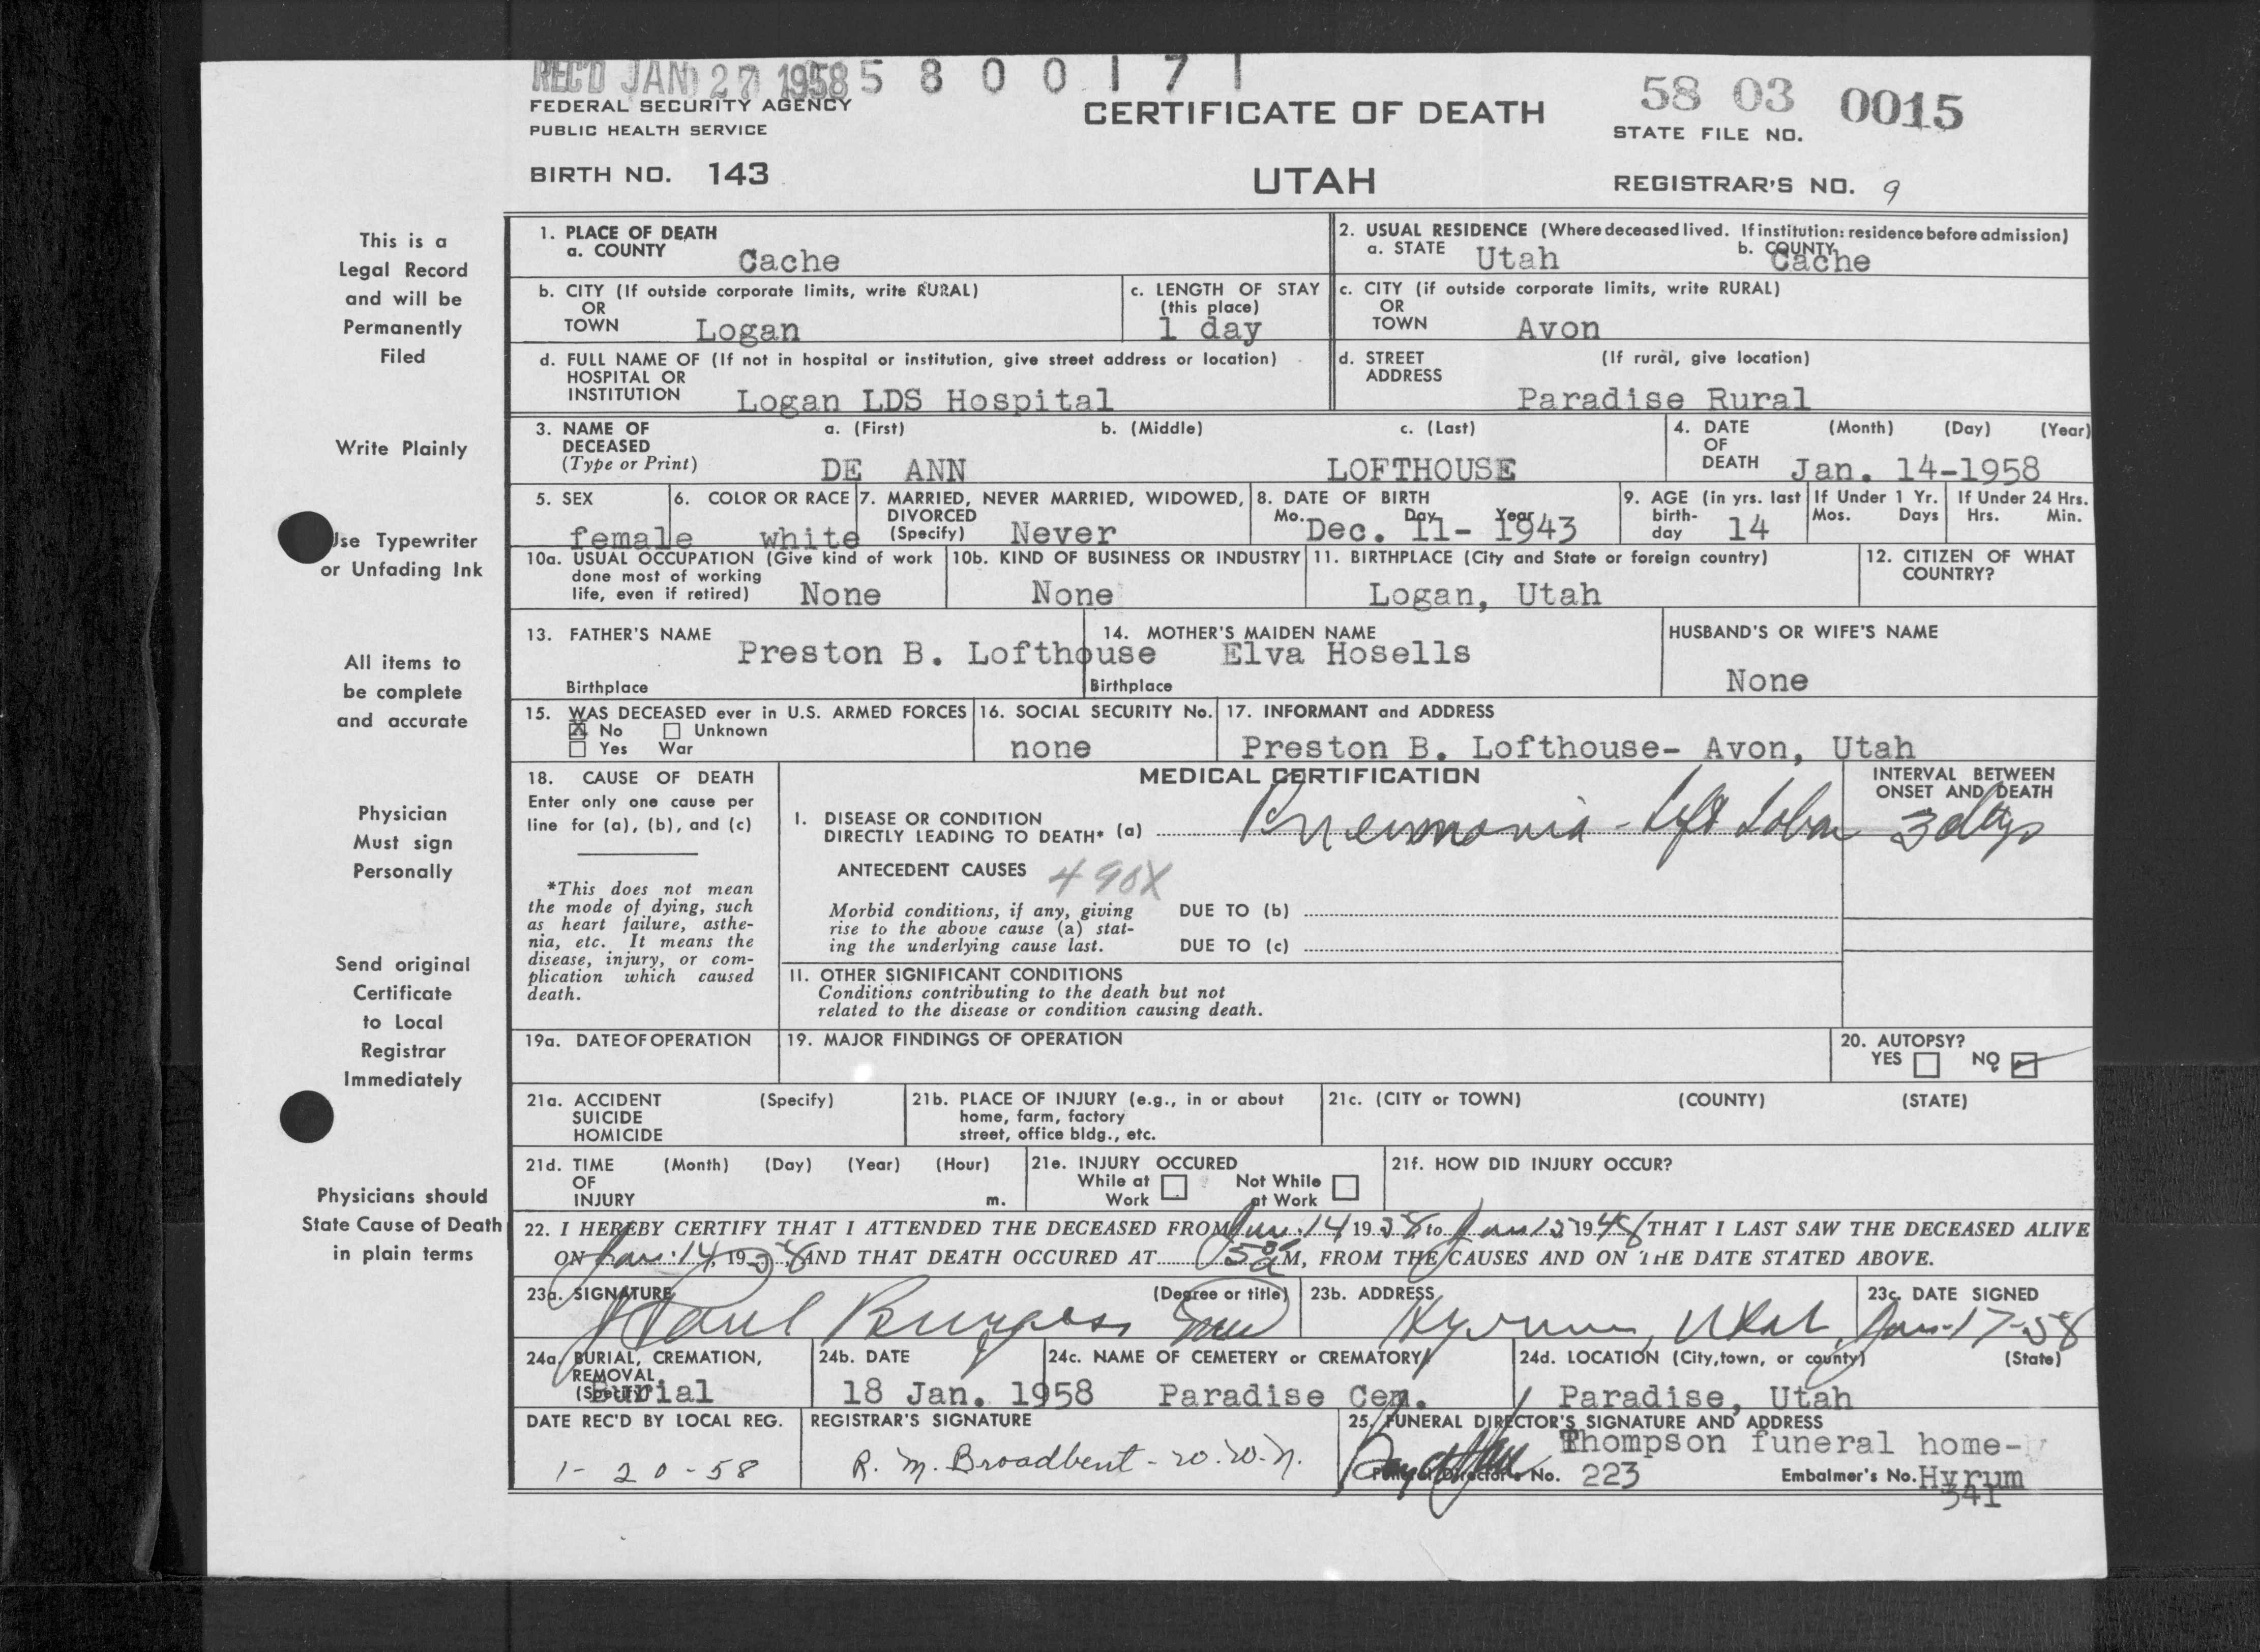 REC'D JAN 27 1958 5 8 0 0 1 7 1
FEDERAL SECURITY AGENCY
PUBLIC HEALTH SERVICE
CERTIFICATE OF DEATH
58 03 0015
STATE FILE NO.
BIRTH NO. 143
UTAH
REGISTRAR'S NO. 9
This is a
Legal Record
and will be
Permanently
Filed
Write Plainly
Use Typewriter
or Unfading Ink
All items to
be complete
and accurate
Physician
Must sign
Personally
Send original
Certificate
to Local
Registrar
Immediately
Physicians should
State Cause of Death
in plain terms
1. PLACE OF DEATH
a. COUNTY Cache
2. USUAL RESIDENCE (Where deceased lived. If institution: residence before admission)
a. STATE Utah b. COUNTY Cache
b. CITY (If outside corporate limits, write RURAL)
OR
TOWN Logan
c. LENGTH OF STAY
(this place)
1 day
c. CITY (if outside corporate limits, write RURAL)
OR
TOWN Avon
d. FULL NAME OF (If not in hospital or institution, give street address or location)
HOSPITAL OR
INSTITUTION Logan LDS Hospital
d. STREET (If rural, give location)
ADDRESS
Paradise Rural
3. NAME OF a. (First) b. (Middle) c. (Last)
DECEASED
(Type or Print) DE ANN LOFTHOUSE
4. DATE (Month) (Day) (Year)
OF
DEATH Jan. 14-1958
5. SEX
female
6. COLOR OR RACE
white
7. MARRIED, NEVER MARRIED, WIDOWED,
DIVORCED
(Specify) Never
8. DATE OF BIRTH
Mo. Day Year
Dec. 11- 1943
9. AGE (in yrs. last
birth-
day 14
If Under 1 Yr.
Mos. Days
If Under 24 Hrs.
Hrs. Min.
10a. USUAL OCCUPATION (Give kind of work
done most of working
life, even if retired) None
10b. KIND OF BUSINESS OR INDUSTRY
None
11. BIRTHPLACE (City and State or foreign country)
Logan, Utah
12. CITIZEN OF WHAT
COUNTRY?
13. FATHER'S NAME
Preston B. Lofthouse
Birthplace
14. MOTHER'S MAIDEN NAME
Elva Hosells
Birthplace
HUSBAND'S OR WIFE'S NAME
None
15. WAS DECEASED ever in U.S. ARMED FORCES
X No Unknown
Yes War
16. SOCIAL SECURITY No.
none
17. INFORMANT and ADDRESS
Preston B. Lofthouse- Avon, Utah
18. CAUSE OF DEATH
Enter only one cause per
line for (a), (b), and (c)
*This does not mean
the mode of dying, such
as heart failure, asthe-
nia, etc. It means the
disease, injury, or com-
plication which caused
death.
MEDICAL CERTIFICATION
INTERVAL BETWEEN
ONSET AND DEATH
I. DISEASE OR CONDITION
DIRECTLY LEADING TO DEATH* (a) Pneumonia - Left Lobar 3 days
ANTECEDENT CAUSES 490X
Morbid conditions, if any, giving
rise to the above cause (a) stat-
ing the underlying cause last.
DUE TO (b)
DUE TO (c)
II. OTHER SIGNIFICANT CONDITIONS
Conditions contributing to the death but not
related to the disease or condition causing death.
19a. DATE OF OPERATION
19. MAJOR FINDINGS OF OPERATION
20. AUTOPSY?
YES NO
21a. ACCIDENT (Specify)
SUICIDE
HOMICIDE
21b. PLACE OF INJURY (e.g., in or about
home, farm, factory
street, office bldg., etc.
21c. (CITY or TOWN) (COUNTY) (STATE)
21d. TIME (Month) (Day) (Year) (Hour)
OF
INJURY m.
21e. INJURY OCCURED
While at Not While
Work at Work
21f. HOW DID INJURY OCCUR?
22. I HEREBY CERTIFY THAT I ATTENDED THE DECEASED FROM Jan. 14 1958 to Jan 15 1948 THAT I LAST SAW THE DECEASED ALIVE
ON Jan. 14, 1958, AND THAT DEATH OCCURED AT 5 a M, FROM THE CAUSES AND ON THE DATE STATED ABOVE.
23a. SIGNATURE (Degree or title)
Paul Burgess
23b. ADDRESS
Hyrum, Utah
23c. DATE SIGNED
Jan-17-58
24a. BURIAL, CREMATION,
REMOVAL
(Specify) Burial
24b. DATE
18 Jan. 1958
24c. NAME OF CEMETERY or CREMATORY
Paradise Cem.
24d. LOCATION (City, town, or county) (State)
Paradise, Utah
DATE REC'D BY LOCAL REG.
1-20-58
REGISTRAR'S SIGNATURE
R. M. Broadbent - w.w.n.
25. FUNERAL DIRECTOR'S SIGNATURE AND ADDRESS
Thompson funeral home-
Funeral Director's No. 223 Embalmer's No. Hyrum
341